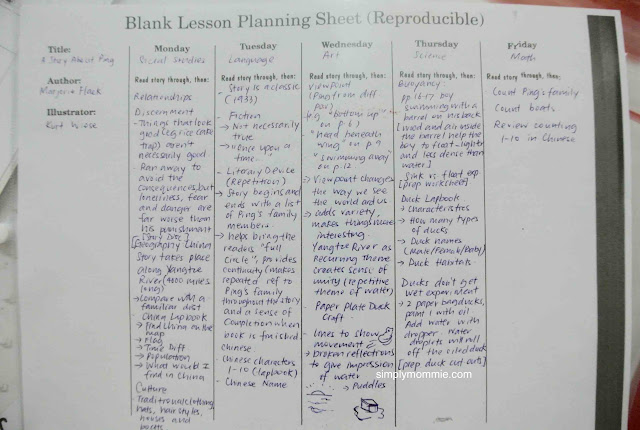 Blank Lesson Planning Sheet (Reproducible)
Title:
A Story About Ping
Author:
Marjorie Flack
Illustrator:
Kurt Wiese
Monday
Social Studies
Read story through, then:
Relationships
Discernment
- Things that look
good (eg rice cake
trap) aren't
necessarily good
- Ran away to
avoid the
consequences, but
loneliness, fear
and danger are
far worse than
his punishment
Geography China
Story takes place
along Yangtze
River (3400 miles
long)
→ Compare with a
familiar dist
- China Lapbook
→ Find China on the
map
→ Flag
→ Time Diff
→ Population
→ What would I
find in China
Culture
- Traditional clothing,
hats, hair styles,
houses and
boats
Tuesday
Language
Read story through, then:
- Story is a classic
(1933)
- Fiction
→ Not necessarily
true
→ "Once upon a
time..
- Literary Device
(Repetition)
→ Story begins and
ends with a list
of Ping's family
members.
→ helps bring the
readers "full
circle", provides
continuity (makes
repeated ref to
Ping's family
throughout the story
and a sense of
completion when
book is finished.
Chinese
- Chinese characters
1-10 (lapbook)
- Chinese Name
Wednesday
Art
Read story through, then:
Viewpoint
(Ping from diff
pov)
e.g. "bottom up"
on p.6)
- "head beneath
wing" on p.9
- "swimming away"
on p.12
→ Viewpoint changes
the way we see
the world and us
→ adds variety,
makes things more
interesting.
Yangtze River as
recurring theme
creates sense of
unity (repetitive
theme of water)
- Paper Plate Duck
Craft
- Lines to show
movement
→ broken reflections
to give impression
of water
→ Puddles
Thursday
Science
Read story through, then:
Buoyancy
pp. 16-17 boy
swimming with a
barrel on his back
[wood and air inside
the barrel help the
boy to float - lighter
and less dense than
water]
- Sink vs float exp
[prep worksheet]
Duck Lapbook
→ Characteristics
→ How many types
of ducks
→ Duck names
(Male/Female/Baby)
→ Duck Habitats
Ducks don't get
wet experiment
→ 2 paper bag ducks,
paint 1 with oil
Add water with
dropper. Water
droplets will roll
off the oiled duck
[prep duck cut outs]
Friday
Math
Read story through, then:
Count Ping's family
Count boats
Review counting
1-10 in Chinese
simplymommie.com